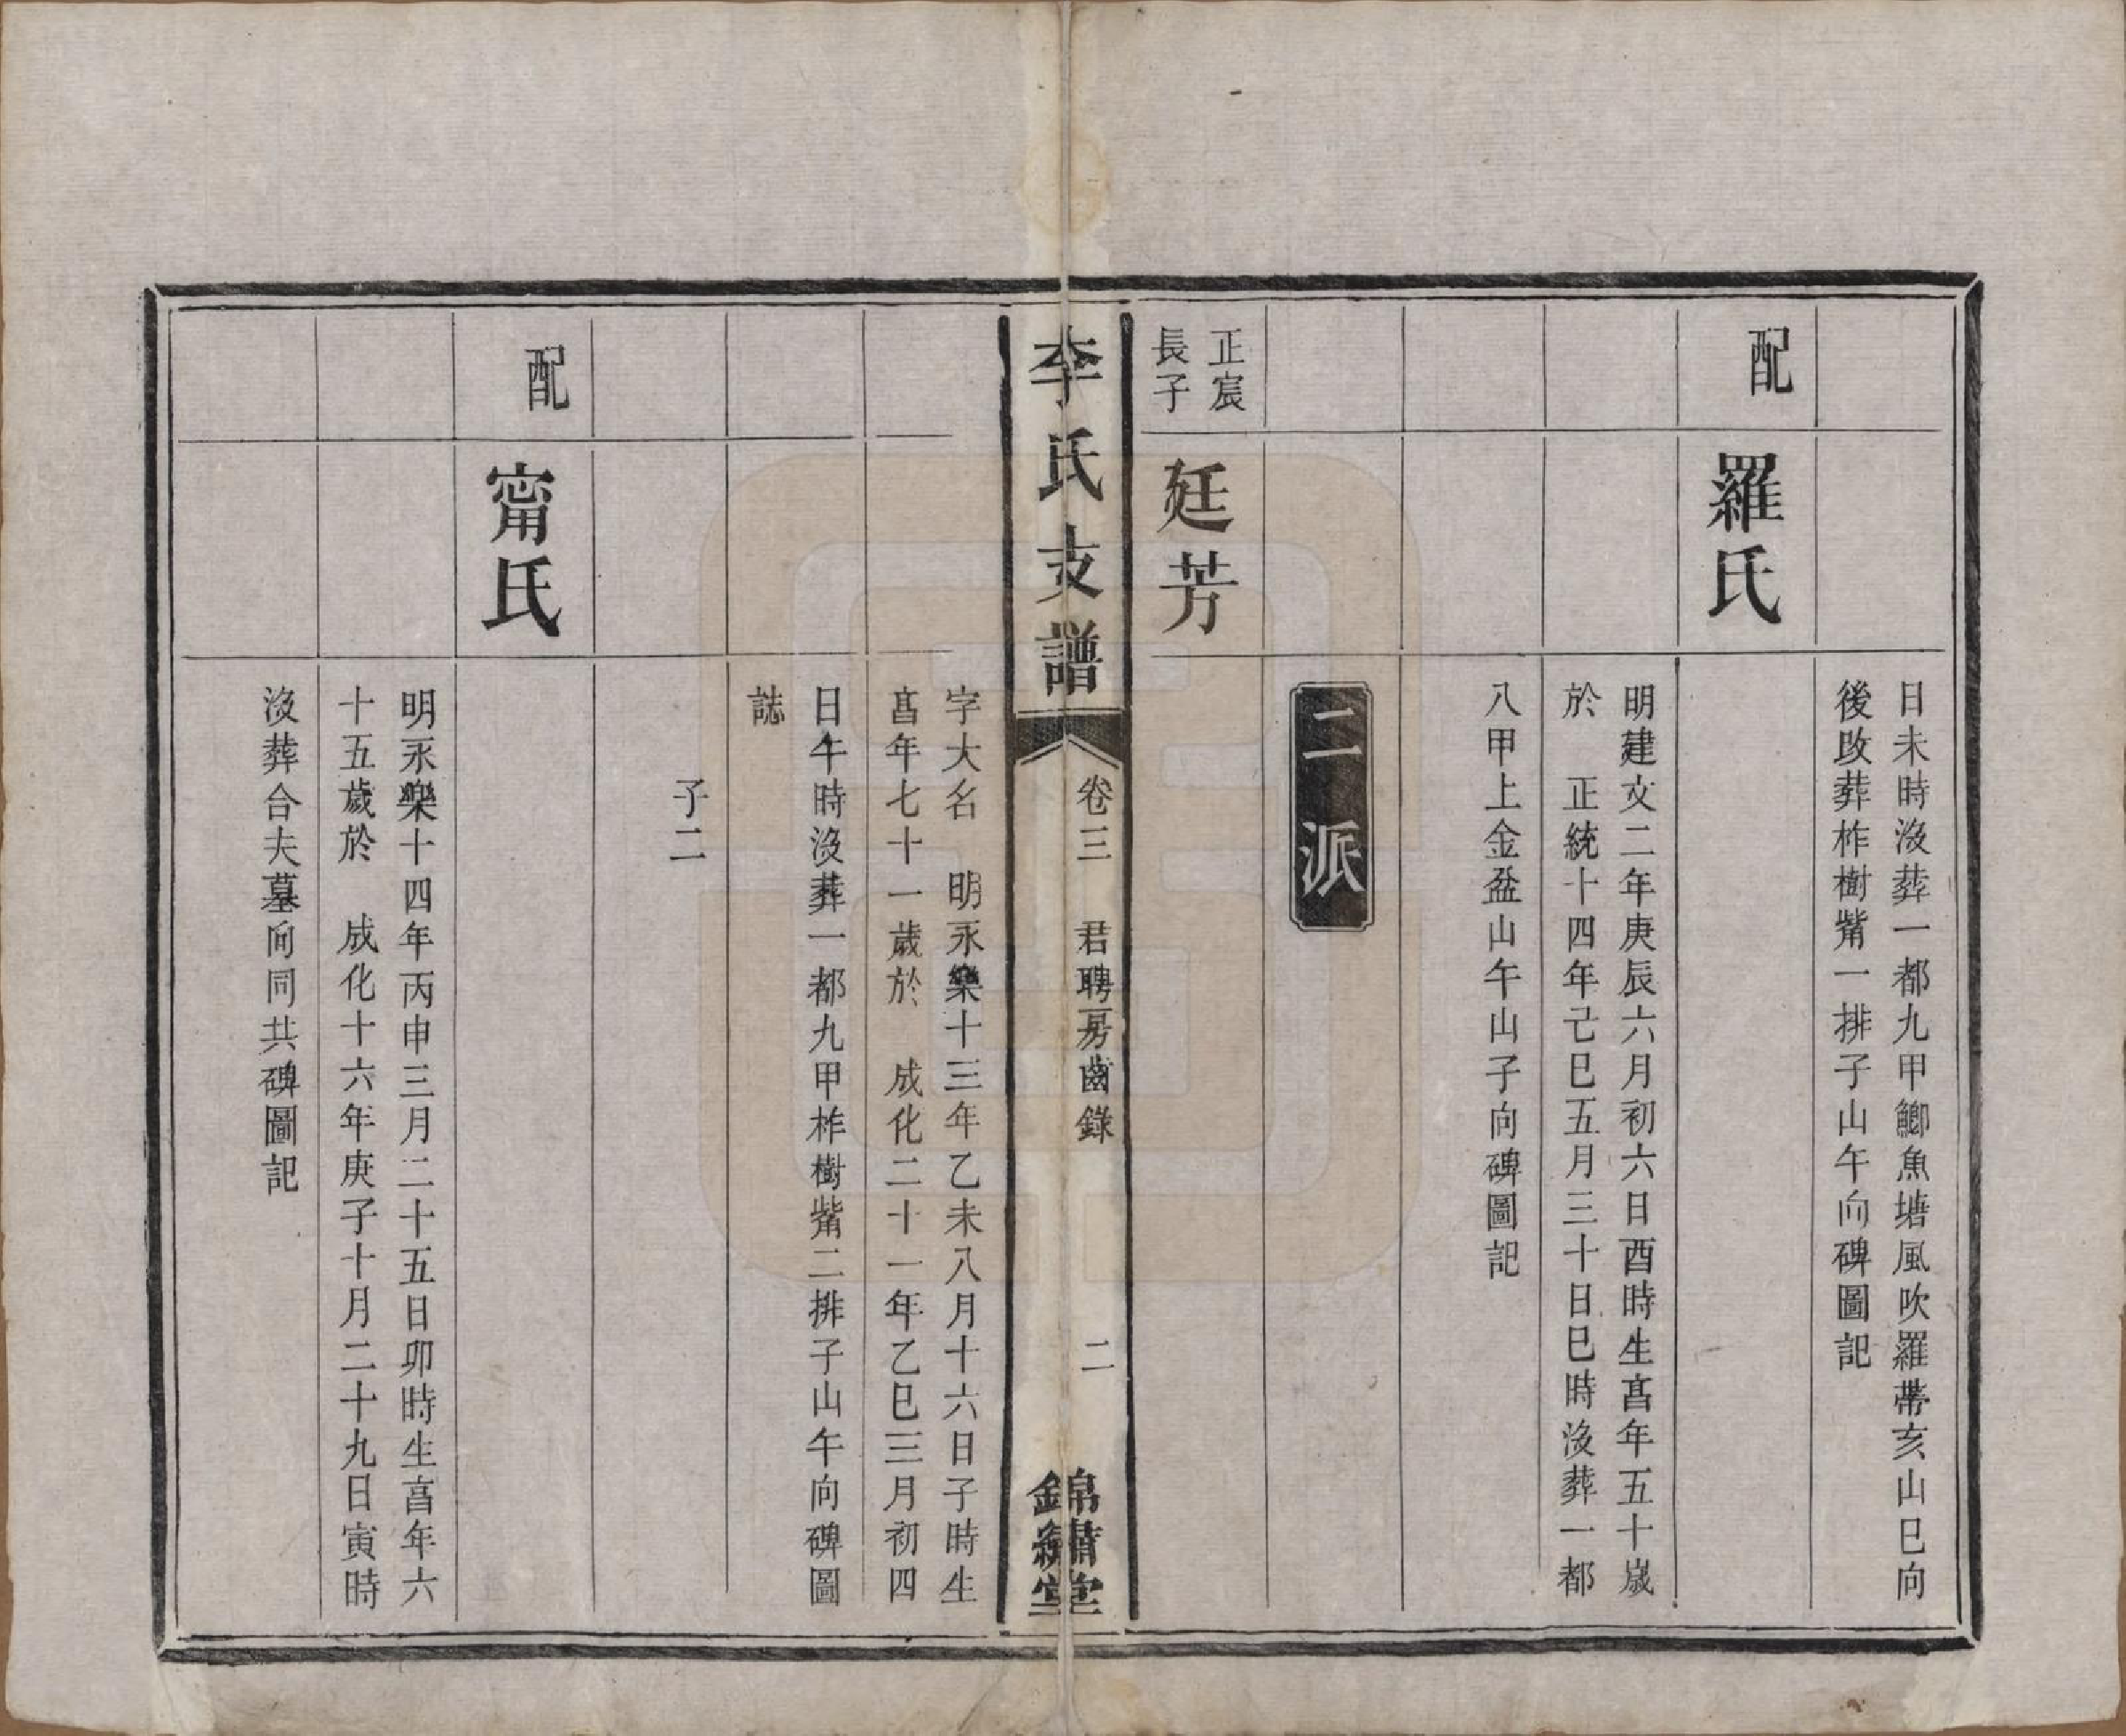 日未時沒葬一都九甲鯽魚塘風吹羅帶亥山巳向
後改葬柞樹觜一排子山午向碑圖記
配
羅氏
明建文二年庚辰六月初六日酉時生髙年五十歲
於　正統十四年己巳五月三十日巳時沒葬一都
八甲上金盆山午山子向碑圖記
二派
正宸
長子
廷芳
李氏支譜
卷三　君聘房齒錄
二
錦繡堂
字大名　明永樂十三年乙未八月十六日子時生
髙年七十一歲於　成化二十一年乙巳三月初四
日午時沒葬一都九甲柞樹觜二排子山午向碑圖
誌
子二
配
甯氏
明永樂十四年丙申三月二十五日卯時生髙年六
十五歲於　成化十六年庚子十月二十九日寅時
沒葬合夫墓向同共碑圖記